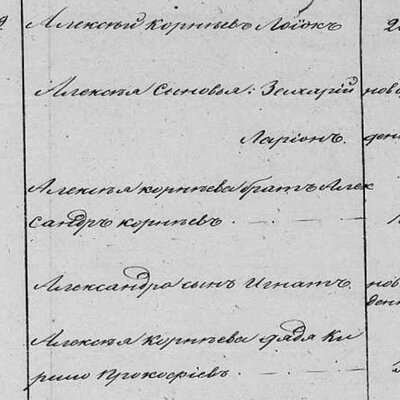 9 Алексѣй Корнѣевъ Лоіокъ 2
Алексѣя Сыновья: Захарій ново
Ларіонъ. ден
Алексѣя корнѣева братъ Алек
сандръ корнѣевъ
Александра сынъ Игнатъ нов
ден
Алексѣя Корнѣева дядя Ки
рило Прокофіевъ